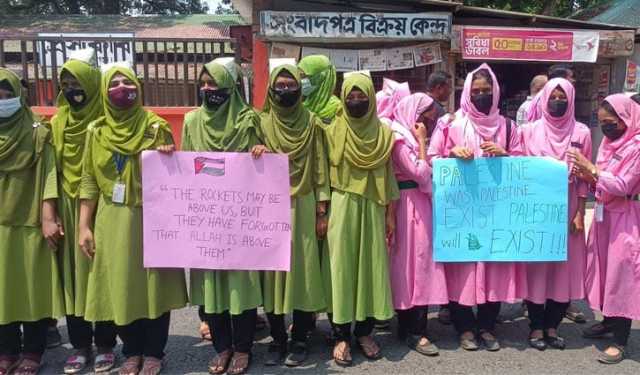 সংবাদপত্র বিক্রয় কেন্দ্র
সুবিধা
"THE ROCKETS MAY BE
ABOVE US, BUT
THEY HAVE FORGOTTEN
THAT ALLAH IS ABOVE
THEM"
PALESTINE
WAS PALESTINE
EXIST PALESTINE
will EXIST!!!